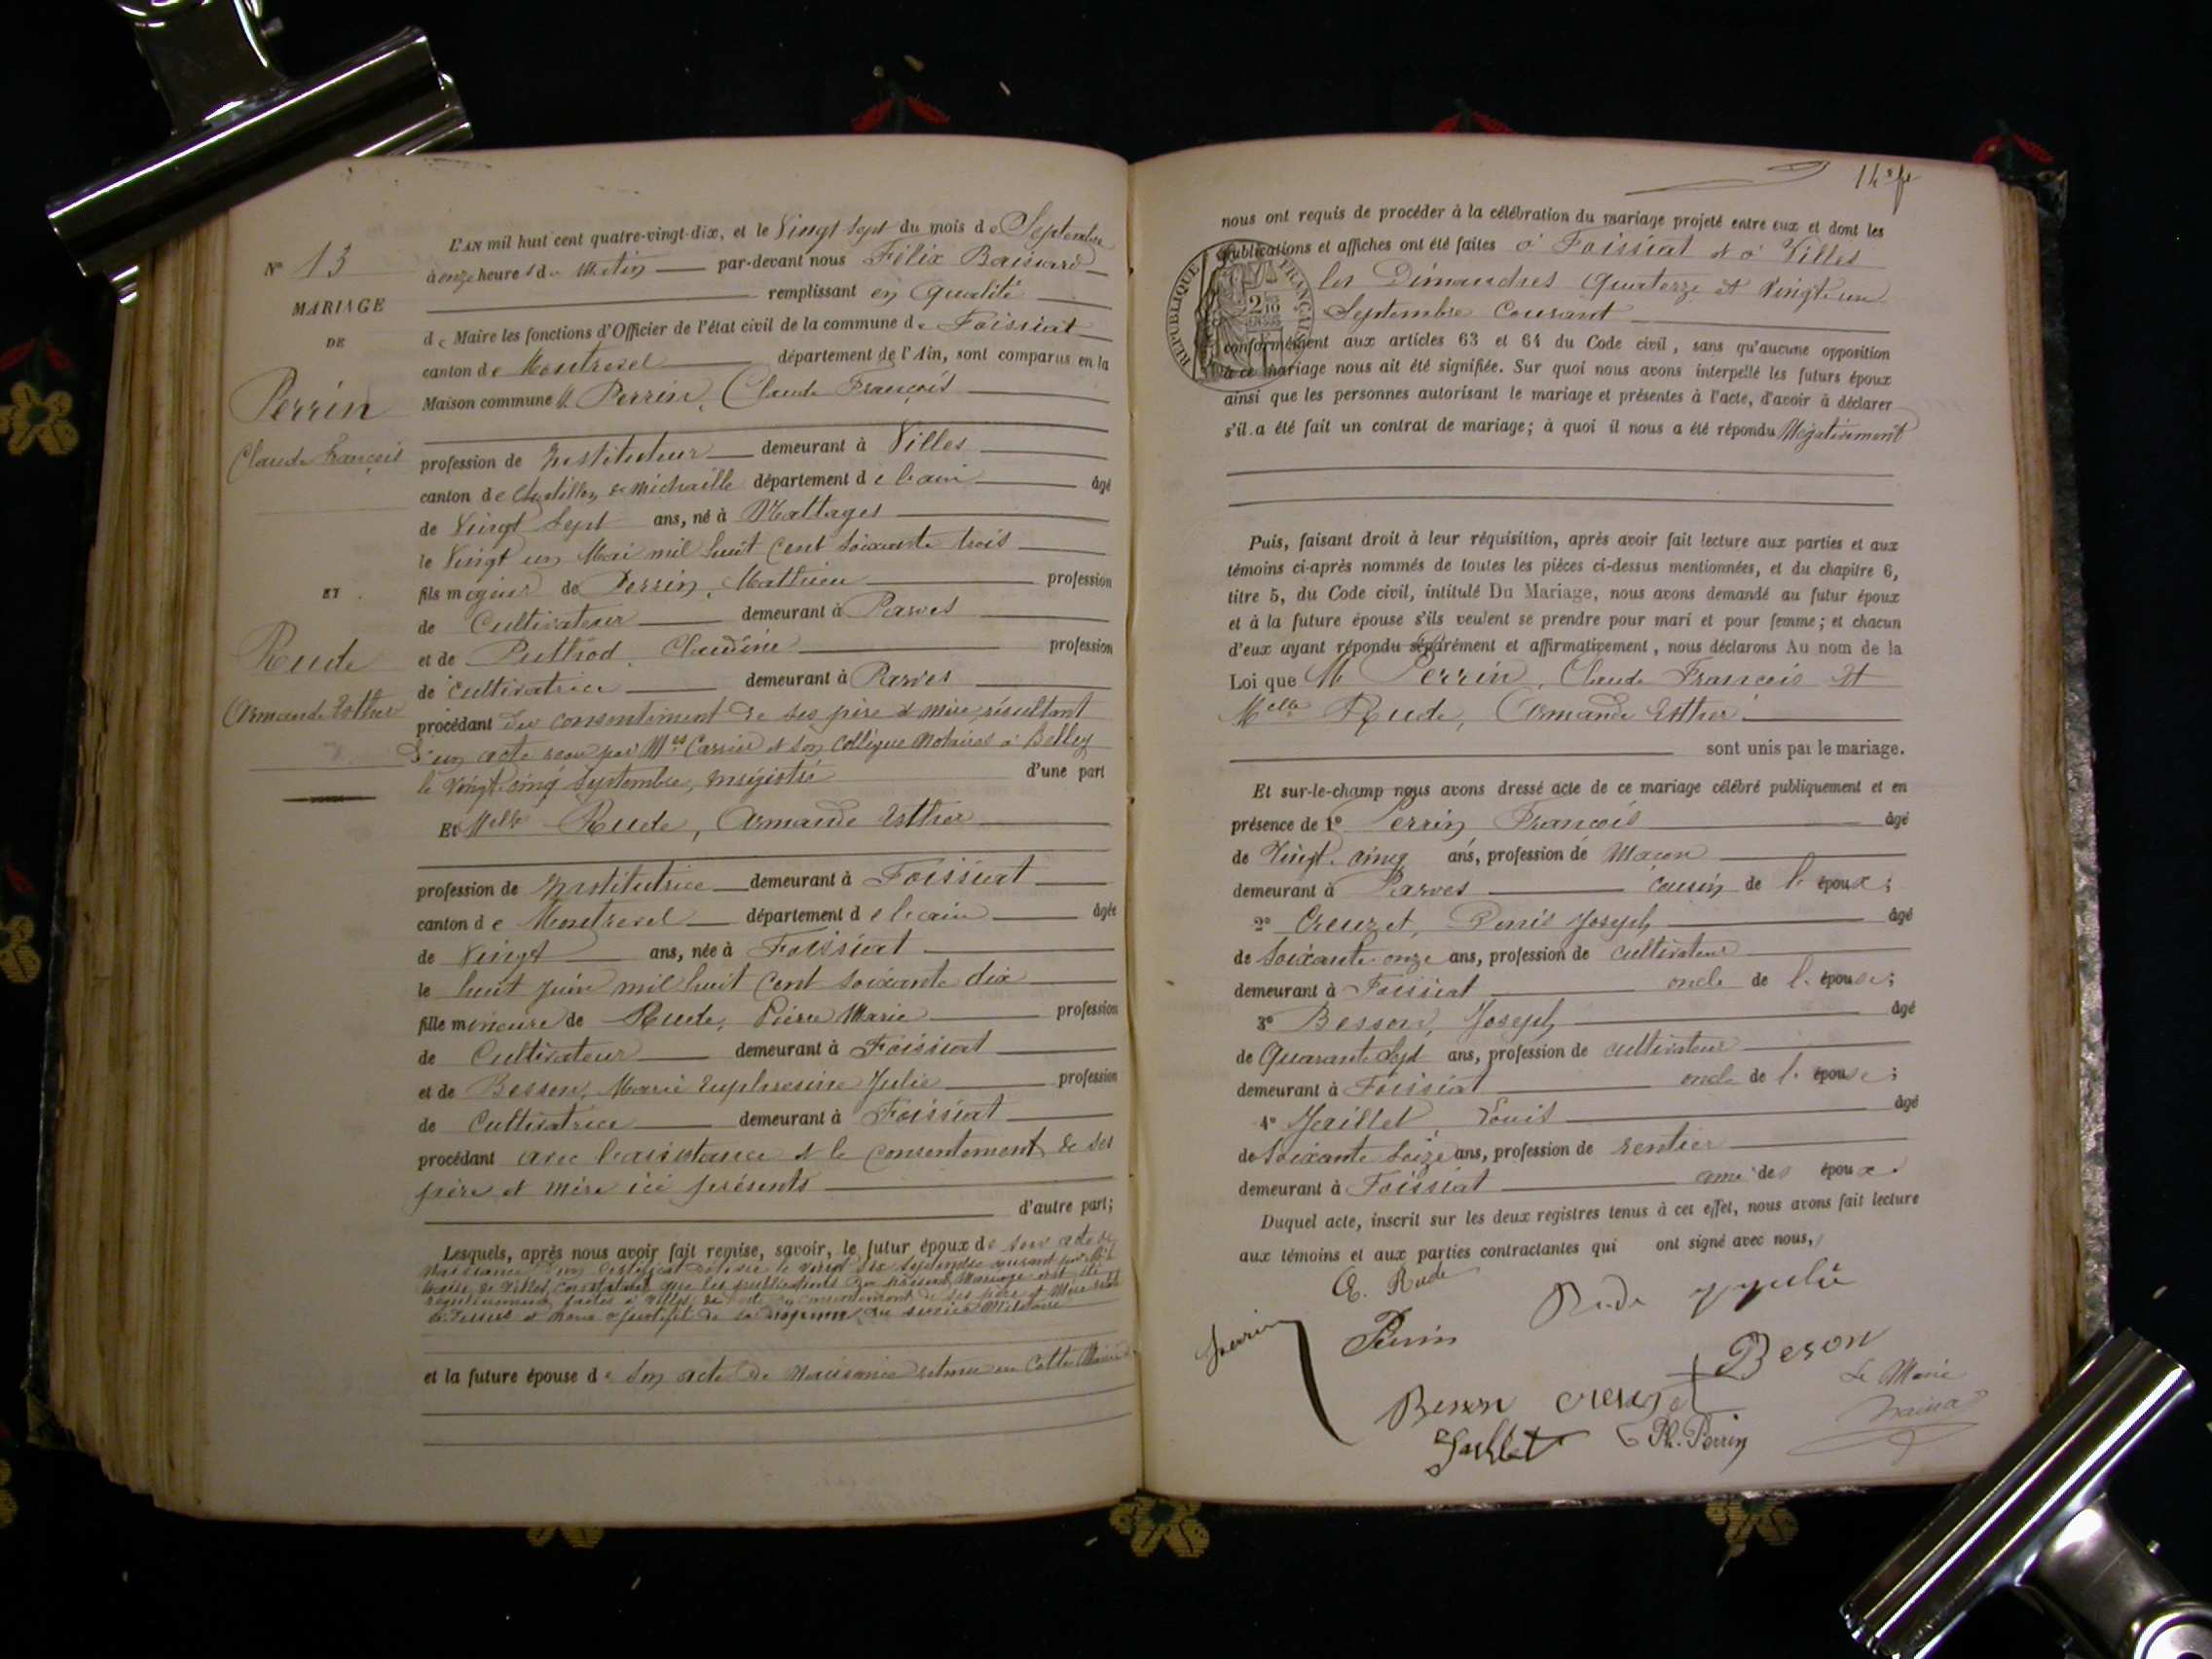 L'AN mil huit cent quatre-vingt-dix, et le Vingt Sept du mois de Septembre
N° 13
à onze heures du Matin par-devant nous Félix
remplissant en qualité
MARIAGE
DE
de Maire les fonctions d'Officier de l'état civil de la commune de Foissiat
canton de Montrevel département de l'Ain, sont comparus en la
Perrin
Claude François
Maison commune M. Perrin, Claude François
profession de Instituteur demeurant à Villes
canton de Chatillon de Michaille département de l'ain âgé
de Vingt Sept ans, né à Nattages
le Vingt un Mai mil huit Cent Soixante trois
ET
fils majeur de Perrin, Mathieu profession
de Cultivateur demeurant à Parves
Rude
et de Puthod, Claudine profession
de cultivatrice demeurant à Parves
Armande Esther
procédant du consentement de ses père & mère, résultant
d'un acte reçu par Mes Carrier et son collègue notaires à Belley
le Vingt cinq Septembre, enrégistré d'une part
Et Melle Rude, Armande Esther
profession de Institutrice demeurant à Foissiat
canton de Montrevel département de l'ain âgée
de Vingt ans, née à Foissiat
le huit juin mil huit Cent soixante dix
fille mineure de Rude, Pierre Marie profession
de Cultivateur demeurant à Foissiat
et de Besson, Marie Euphrosine Julie profession
de Cultivatrice demeurant à Foissiat
procédant avec l'assistance & le consentement de ses
père et mère ici présents
d'autre part;
Lesquels, après nous avoir fait remise, savoir, le futur époux de son acte de
naissance d'un Certificat délivré le vingt six Septembre courant par le
maire de Villes, constatant que les publications du présent Mariage ont été
régulièrement faites à Villes, de l'acte de consentement de ses père et Mère
et nous a justifié de sa du service Militaire
et la future épouse de son acte de Naissance retenu en Cette Mairie
14
nous ont requis de procéder à la célébration du mariage projeté entre eux et dont les
publications et affiches ont été faites à Foissiat & à Villes
les Dimanches Quatorze et Vingt un
Septembre Courant
RÉPUBLIQUE FRANÇAISE
conformément aux articles 63 et 64 du Code civil, sans qu'aucune opposition
à ce mariage nous ait été signifiée. Sur quoi nous avons interpellé les futurs époux
ainsi que les personnes autorisant le mariage et présentes à l'acte, d'avoir à déclarer
s'il a été fait un contrat de mariage; à quoi il nous a été répondu Négativement
Puis, faisant droit à leur réquisition, après avoir fait lecture aux parties et aux
témoins ci-après nommés de toutes les pièces ci-dessus mentionnées, et du chapitre 6,
titre 5, du Code civil, intitulé Du Mariage, nous avons demandé au futur époux
et à la future épouse s'ils veulent se prendre pour mari et pour femme; et chacun
d'eux ayant répondu séparément et affirmativement, nous déclarons Au nom de la
Loi que M Perrin, Claude François et
Melle Rude, Armande Esther
sont unis par le mariage.
Et sur-le-champ nous avons dressé acte de ce mariage célébré publiquement et en
présence de 1° Perrin François âgé
de Vingt cinq ans, profession de Maçon
demeurant à Parves cousin de l'époux;
2° Creuzet, Denis Joseph âgé
de Soixante onze ans, profession de cultivateur
demeurant à Foissiat oncle de l'épouse;
3° Besson, Joseph âgé
de Quarante Sept ans, profession de cultivateur
demeurant à Foissiat oncle de l'épouse;
4° Jaillet, Louis âgé
de Soixante Seize ans, profession de rentier
demeurant à Foissiat ami des époux.
Duquel acte, inscrit sur les deux registres tenus à cet effet, nous avons fait lecture
aux témoins et aux parties contractantes qui ont signé avec nous,
E. Rude
Rude
Perrin
Beson
Le Maire
Besson
Jaillet
Ph. Perrin